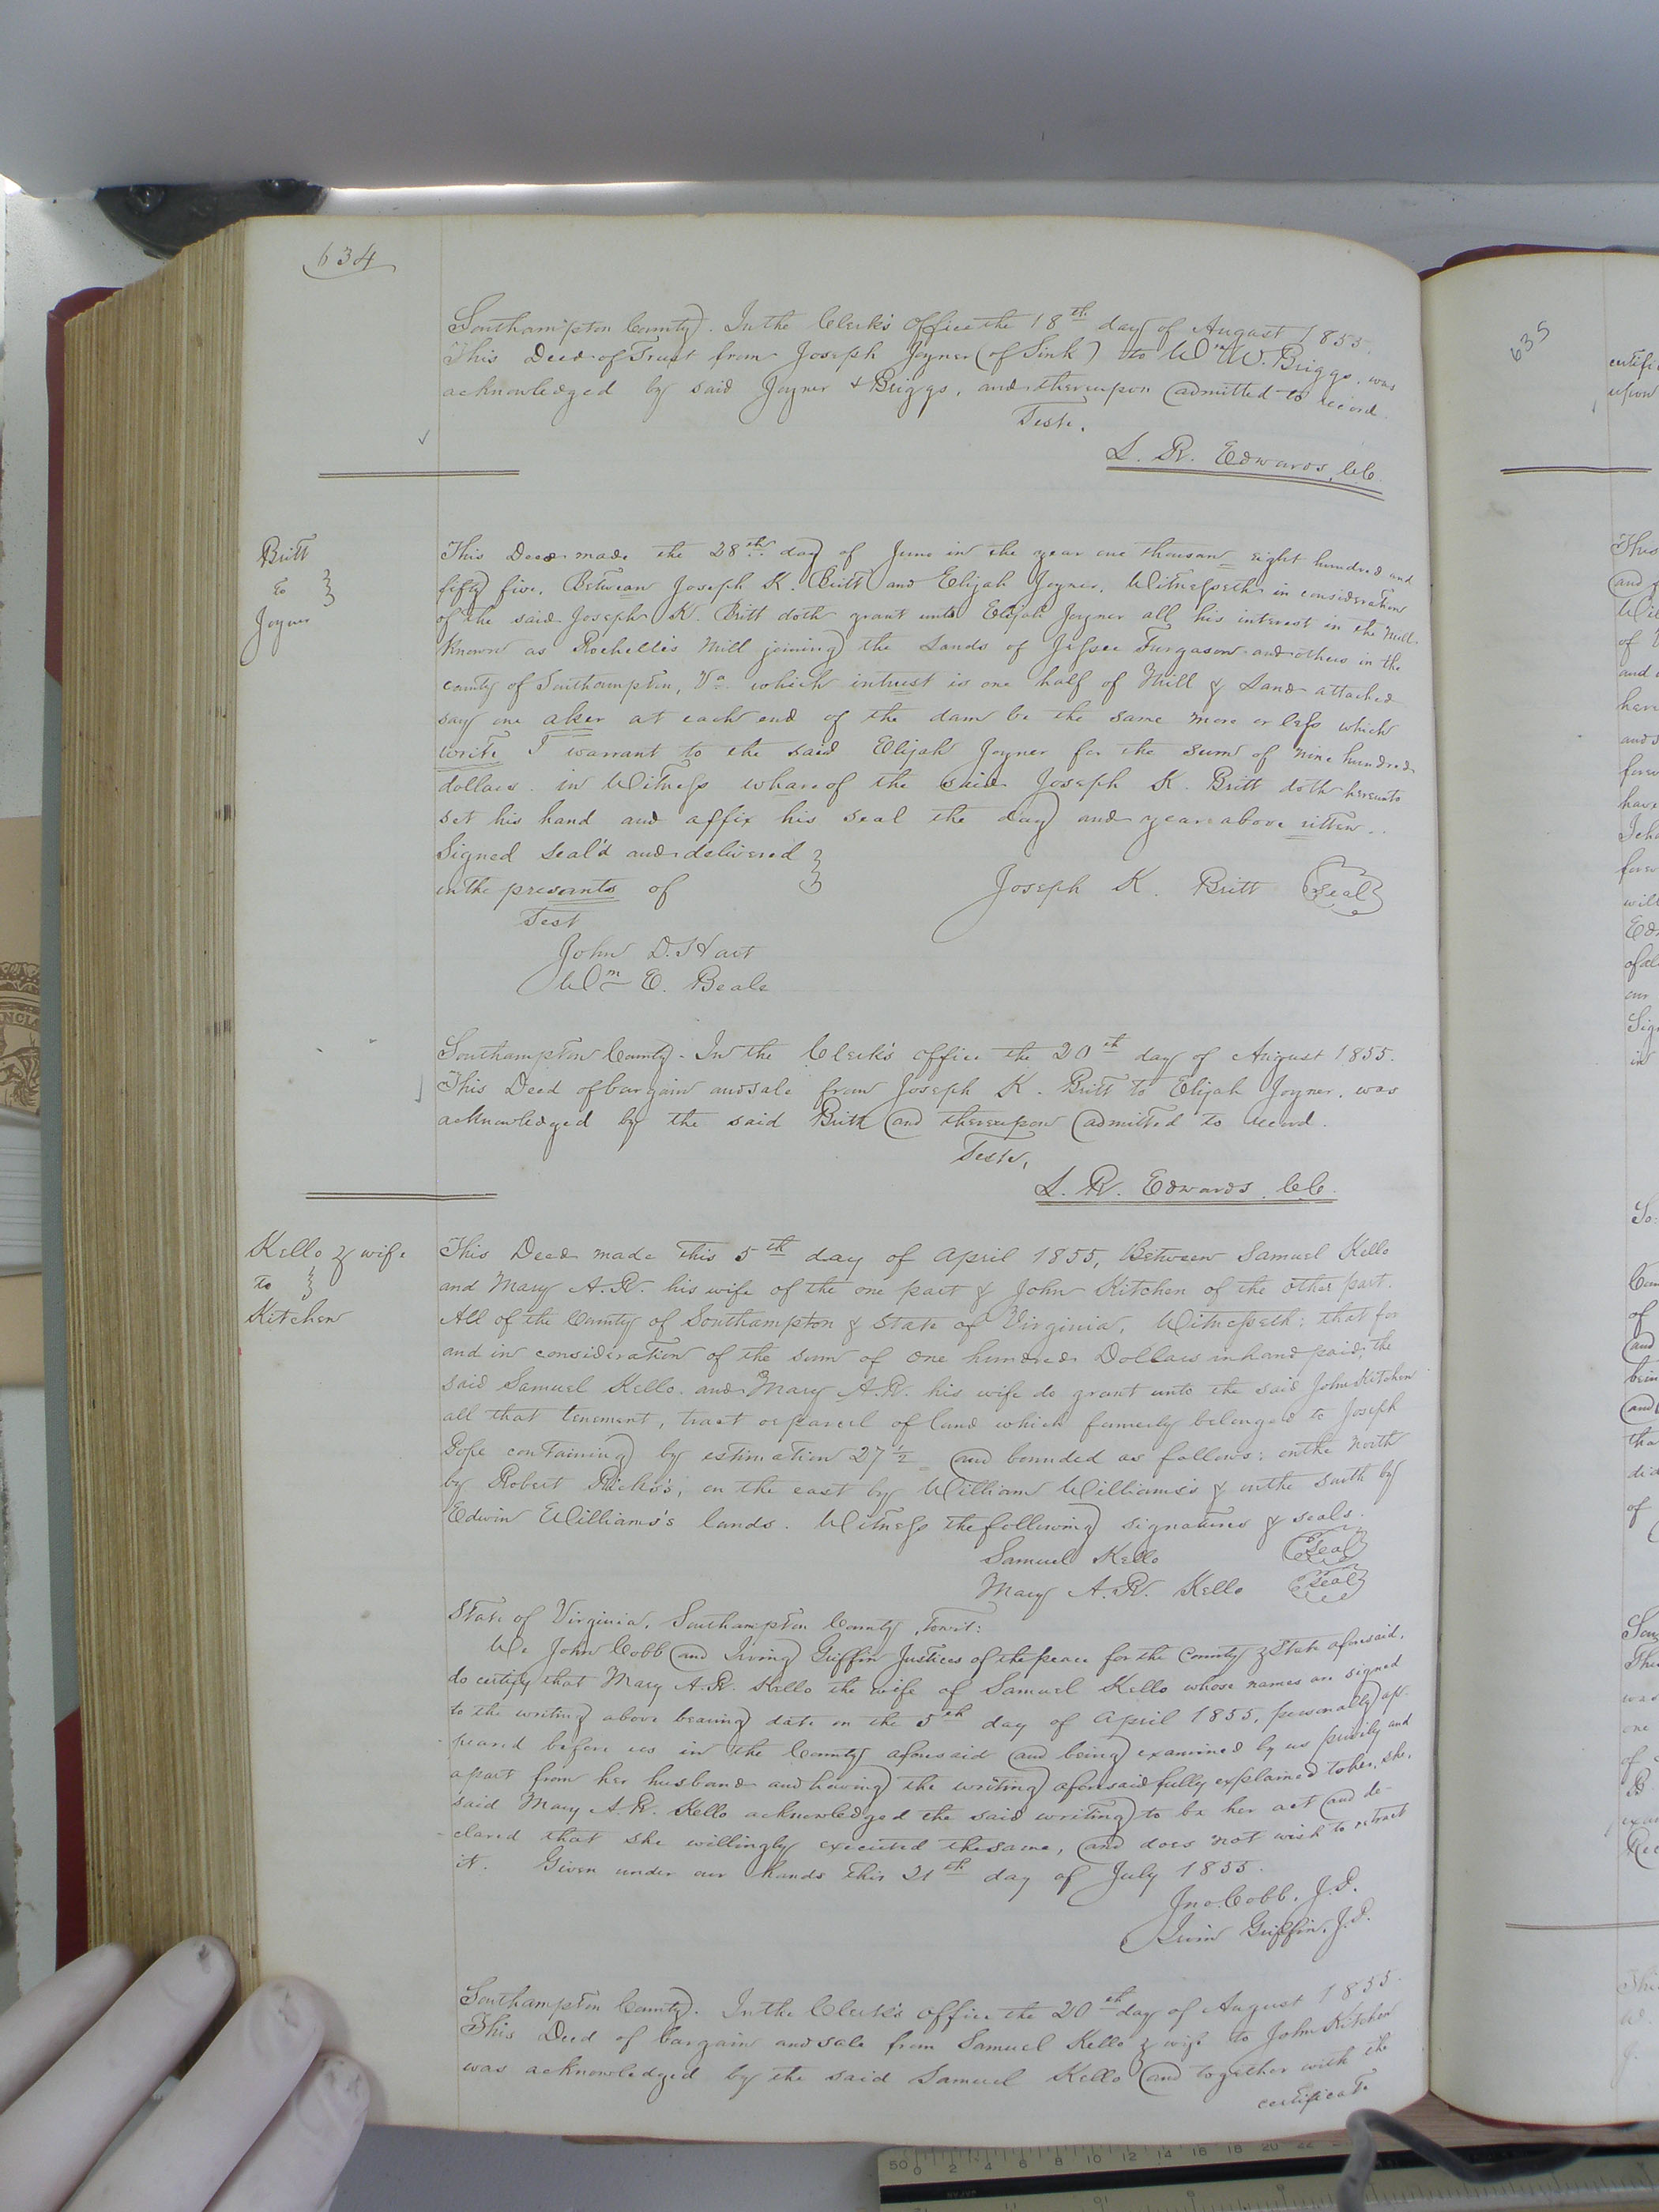 634
Southampton County. In the Clerk's Office the 18th day of August 1855.
This Deed of Trust from Joseph Joyner (of Sink) to Wm W. Briggs, was
acknowledged by said Joyner & Briggs, and thereupon admitted to record.
Teste,
L. R. Edwards, CC
Britt
to
Joyner
This Deed made the 28th day of June in the year one thousand eight hundred and
fifty five. Between Joseph K. Britt and Elijah Joyner. Witnesseth in consideration
of the said Joseph K. Britt doth grant unto Elijah Joyner all his interest in the Mill
Known as Rochelle's Mill joining the Lands of Jessee Furgason and others in the
county of Southampton, Va. which intrust is one half of Mill & Land attached
say one aker at each end of the dam be the same more or less which
write I warrant to the said Elijah Joyner for the sum of nine hundred
dollars. in Witness whareof the said Joseph K. Britt doth hereunto
set his hand and affix his seal the day and year above ritten.
Signed seal'd and delivered
in the presants of
Joseph K. Britt Seal
Test
John D. Hart
Wm E. Beale
Southampton County. In the Clerk's office the 20th day of August 1855.
This Deed of bargain and sale from Joseph K. Britt to Elijah Joyner, was
acknowledged by the said Britt and thereupon admitted to record.
Teste,
L. R. Edwards, CC
Kello & wife
to
Kitchen
This Deed made this 5th day of April 1855, Between Samuel Kello
and Mary A. R. his wife of the one part & John Kitchen of the other part.
All of the County of Southampton & State of Virginia, Witnesseth: that for
and in consideration of the sum of one hundred Dollars in hand paid, the
said Samuel Kello and Mary A. R. his wife do grant unto the said John Kitchen
all that tenement, tract or parcel of land which formerly belonged to Joseph
Pope containing by estimation 27 1/2 and bounded as follows: on the north
by Robert Ricks's, on the east by William Williams's & on the south by
Edwin Williams's lands. Witness the following signatures & seals.
Samuel Kello Seal
Mary A. R. Kello Seal
State of Virginia, Southampton County, towit:
We John Cobb and Irving Griffin Justices of the peace for the County & State aforesaid,
do certify that Mary A. R. Kello the wife of Samuel Kello whose names are signed
to the writing above bearing date on the 5th day of April 1855, personally ap-
peared before us in the County aforesaid and being examined by us privily and
apart from her husband and having the writing aforesaid fully explained to her, she,
said Mary A. R. Kello acknowledged the said writing to be her act and de-
clared that she willingly executed the same, and does not wish to retract
it. Given under our hands this 21th day of July 1855.
Jno. Cobb, J.P.
Irvin Griffin, J.P.
Southampton County. In the Clerk's office the 20th day of August 1855.
This Deed of bargain and sale from Samuel Kello & wife to John Kitchen
was acknowledged by the said Samuel Kello and together with the
certificate
635
upon
50 0 2 4 6 8 10 12 14 16 18 20 22